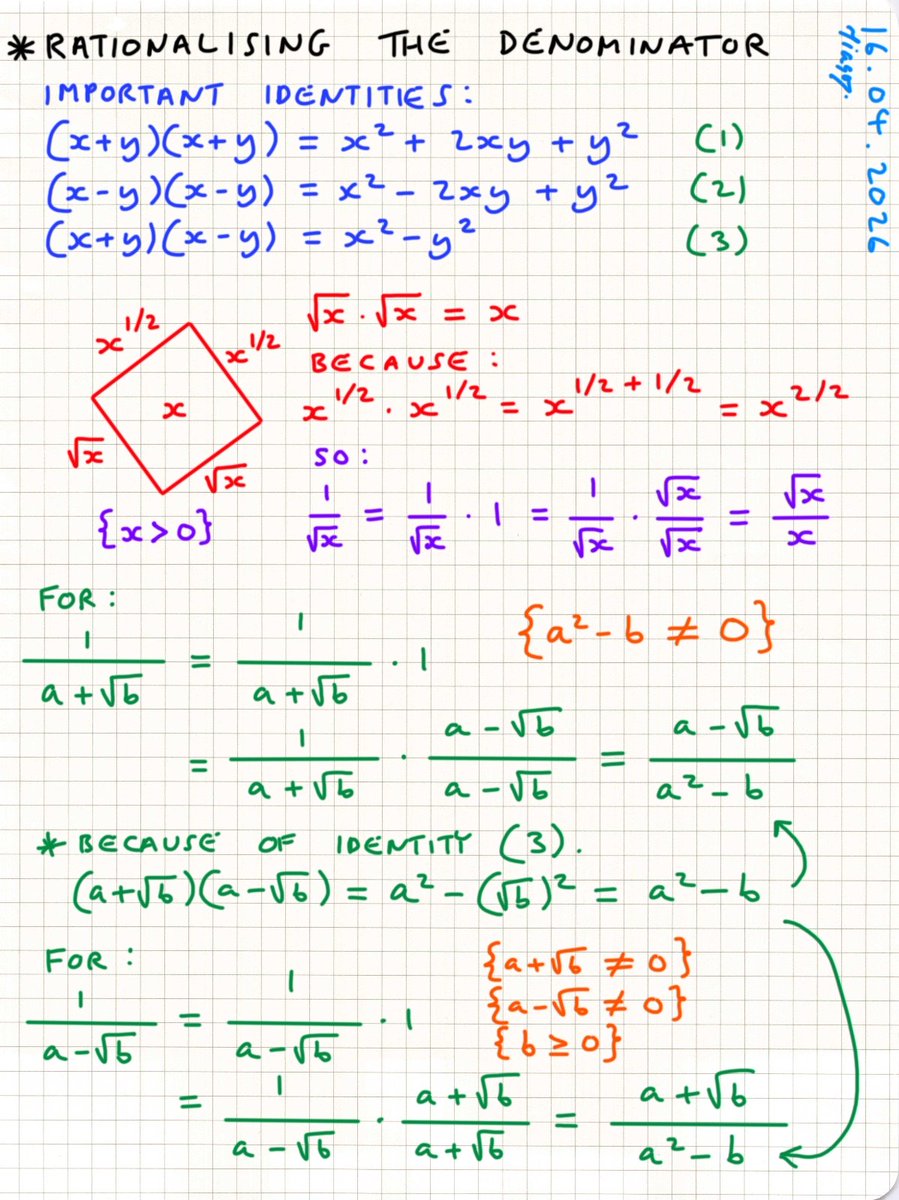 * RATIONALISING THE DENOMINATOR
16.04.2026
IMPORTANT IDENTITIES:
(x+y)(x+y) = x² + 2xy + y² (1)
(x-y)(x-y) = x² - 2xy + y² (2)
(x+y)(x-y) = x² - y² (3)
x^1/2
x^1/2
x
√x
√x
{x>0}
√x · √x = x
BECAUSE:
x^1/2 · x^1/2 = x^1/2 + 1/2 = x^2/2
SO:
1/√x = 1/√x · 1 = 1/√x · √x/√x = √x/x
FOR:
1/(a+√b) = 1/(a+√b) · 1 {a²-b ≠ 0}
= 1/(a+√b) · (a-√b)/(a-√b) = (a-√b)/(a²-b)
* BECAUSE OF IDENTITY (3).
(a+√b)(a-√b) = a² - (√b)² = a² - b
FOR:
{a+√b ≠ 0}
1/(a-√b) = 1/(a-√b) · 1 {a-√b ≠ 0}
{b ≥ 0}
= 1/(a-√b) · (a+√b)/(a+√b) = (a+√b)/(a²-b)